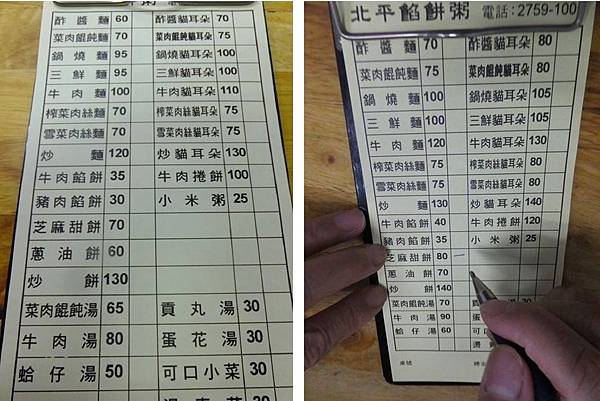 粥
酢醬麵 60 酢醬貓耳朵 70
菜肉餛飩麵 70 菜肉餛飩貓耳朵 75
鍋燒麵 95 鍋燒貓耳朵 100
三鮮麵 95 三鮮貓耳朵 100
牛肉麵 100 牛肉貓耳朵 110
榨菜肉絲麵 70 榨菜肉絲貓耳朵 75
雪菜肉絲麵 70 雪菜肉絲貓耳朵 75
炒麵 120 炒貓耳朵 130
牛肉餡餅 35 牛肉捲餅 100
豬肉餡餅 30 小米粥 25
芝麻甜餅 70
蔥油餅 60
炒餅 130
菜肉餛飩湯 65 貢丸湯 30
牛肉湯 80 蛋花湯 30
蛤仔湯 50 可口小菜 30
北平餡餅粥 電話:2759-100
酢醬麵 70 酢醬貓耳朵 80
菜肉餛飩麵 75 菜肉餛飩貓耳朵 80
鍋燒麵 100 鍋燒貓耳朵 105
三鮮麵 100 三鮮貓耳朵 105
牛肉麵 120 牛肉貓耳朵 130
榨菜肉絲麵 75 榨菜肉絲貓耳朵 80
雪菜肉絲麵 75 雪菜肉絲貓耳朵 80
炒麵 130 炒貓耳朵 140
牛肉餡餅 40 牛肉捲餅 120
豬肉餡餅 35 小米粥 25
芝麻甜餅 80 一
蔥油餅 70
炒餅 140
菜肉餛飩湯 70 貢
牛肉湯 90 蛋
蛤仔湯 60 可口
桌號